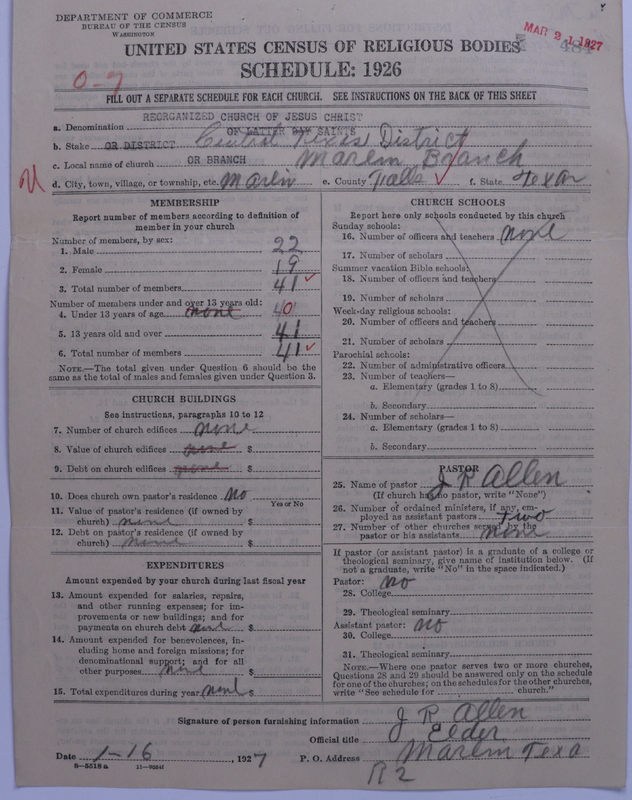 DEPARTMENT OF COMMERCE
BUREAU OF THE CENSUS
WASHINGTON
MAR 21 1927
484
UNITED STATES CENSUS OF RELIGIOUS BODIES
SCHEDULE: 1926
0-9
FILL OUT A SEPARATE SCHEDULE FOR EACH CHURCH. SEE INSTRUCTIONS ON THE BACK OF THIS SHEET
a. Denomination REORGANIZED CHURCH OF JESUS CHRIST
OF LATTER DAY SAINTS
b. Stake OR DISTRICT Central Texas District
c. Local name of church OR BRANCH Marlin Branch
d. City, town, village, or township, etc. Marlin e. County Falls f. State Texas
MEMBERSHIP
Report number of members according to definition of
member in your church
Number of members, by sex:
1. Male 22
2. Female 19
3. Total number of members 41
Number of members under and over 13 years old:
4. Under 13 years of age none 0
5. 13 years old and over 41
6. Total number of members 41
NOTE.—The total given under Question 6 should be
same as the total of males and females given under Question 3.
CHURCH BUILDINGS
See instructions, paragraphs 10 to 12
7. Number of church edifices none
8. Value of church edifices none $
9. Debt on church edifices none $
10. Does church own pastor's residence No
Yes or No
11. Value of pastor's residence (if owned by
church) none $
12. Debt on pastor's residence (if owned by
church) none $
EXPENDITURES
Amount expended by your church during last fiscal year
13. Amount expended for salaries, repairs,
and other running expenses; for im-
provements or new buildings; and for
payments on church debt none $
14. Amount expended for benevolences, in-
cluding home and foreign missions; for
denominational support; and for all
other purposes none $
15. Total expenditures during year none $
CHURCH SCHOOLS
Report here only schools conducted by this church
Sunday schools:
16. Number of officers and teachers none
17. Number of scholars
Summer vacation Bible schools:
18. Number of officers and teachers
19. Number of scholars
Week-day religious schools:
20. Number of officers and teachers
21. Number of scholars
Parochial schools:
22. Number of administrative officers
23. Number of teachers—
a. Elementary (grades 1 to 8)
b. Secondary
24. Number of scholars—
a. Elementary (grades 1 to 8)
b. Secondary
PASTOR
25. Name of pastor J R Allen
(If church has no pastor, write "None")
26. Number of ordained ministers, if any, em-
ployed as assistant pastors two
27. Number of other churches served by the
pastor or his assistants none
If pastor (or assistant pastor) is a graduate of a college or
theological seminary, give name of institution below. (If
not a graduate, write "No" in the space indicated.)
Pastor: no
28. College
29. Theological seminary
Assistant pastor: no
30. College
31. Theological seminary
NOTE.—Where one pastor serves two or more churches,
Questions 28 and 29 should be answered only on the schedule
for one of the churches; on the schedules for the other churches,
write "See schedule for church."
Signature of person furnishing information J R Allen
Official title Elder
Date 1-16, 1927 P. O. Address Marlin Texa
8-5518a R 2